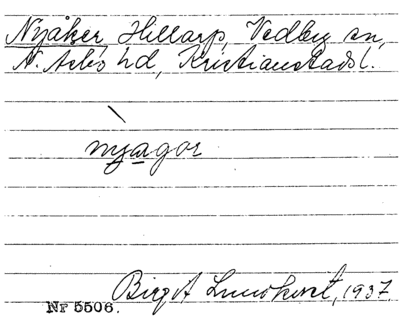 Nyåker, Hillarp, Vedby sn,
N. Åsbo hd, Kristianstads l.
nyagor
Birgit Lundkvist, 1937.
Nr 5506.